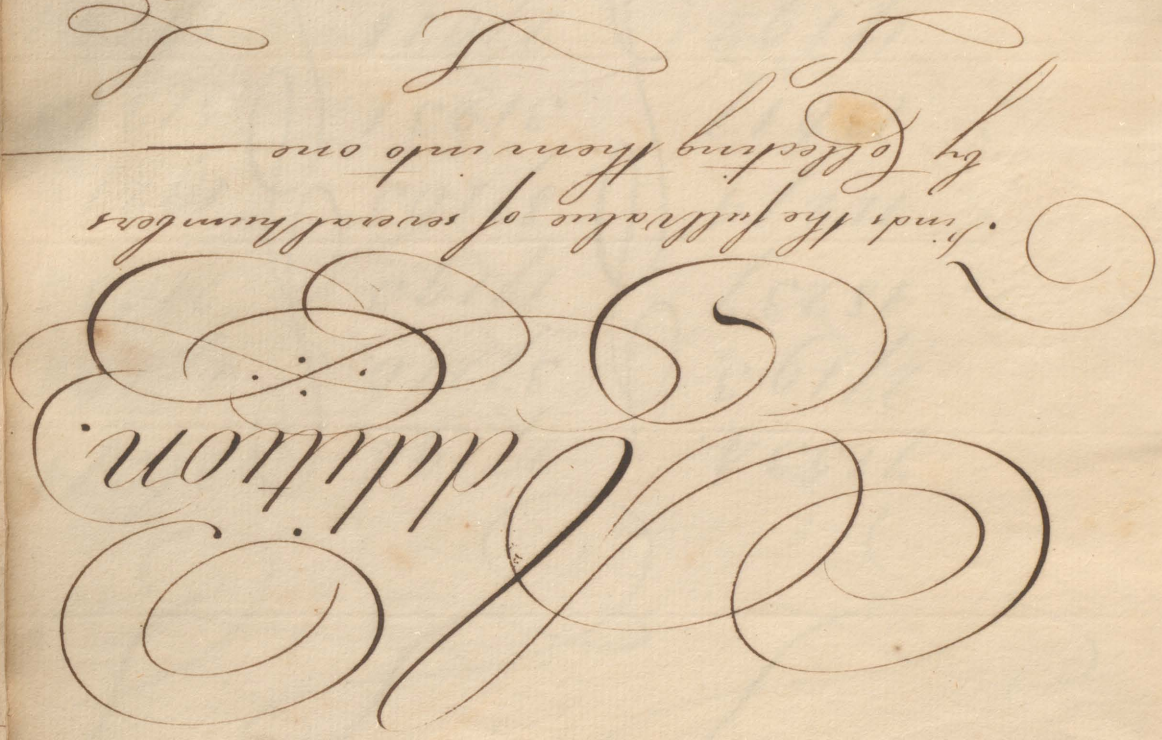 Addition.
Finds the full value of several numbers
by Collecting them into one
L L L